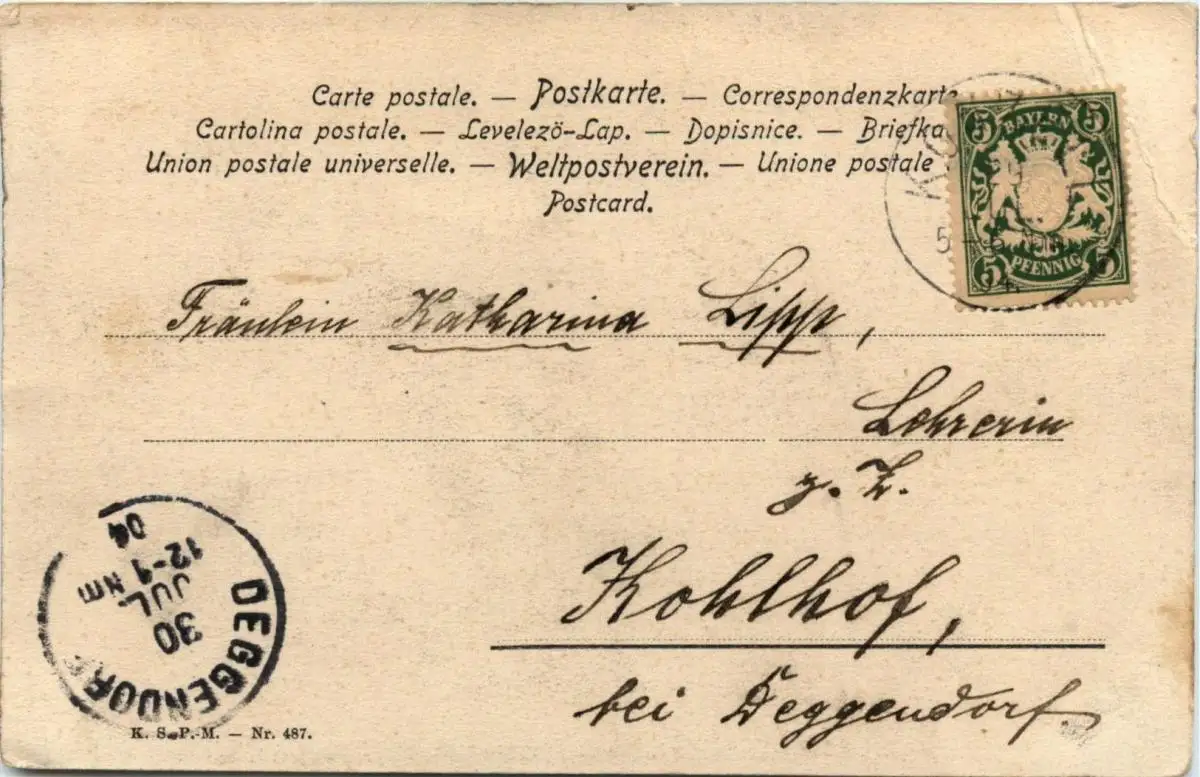 Carte postale. — Postkarte. — Correspondenzkarte
Cartolina postale. — Levelezö-Lap. — Dopisnice. — Briefka
Union postale universelle. — Weltpostverein. — Unione postale
Postcard.
5 5
BAYERN
5 PFENNIG 5
5-6 Nm
Fräulein Katharina Lipp,
Lehrerin
z. Z.
Kohlhof,
bei Deggendorf.
DEGGENDORF
30
JUL.
12-1 Nm
04
K. S. P.-M. — Nr. 487.